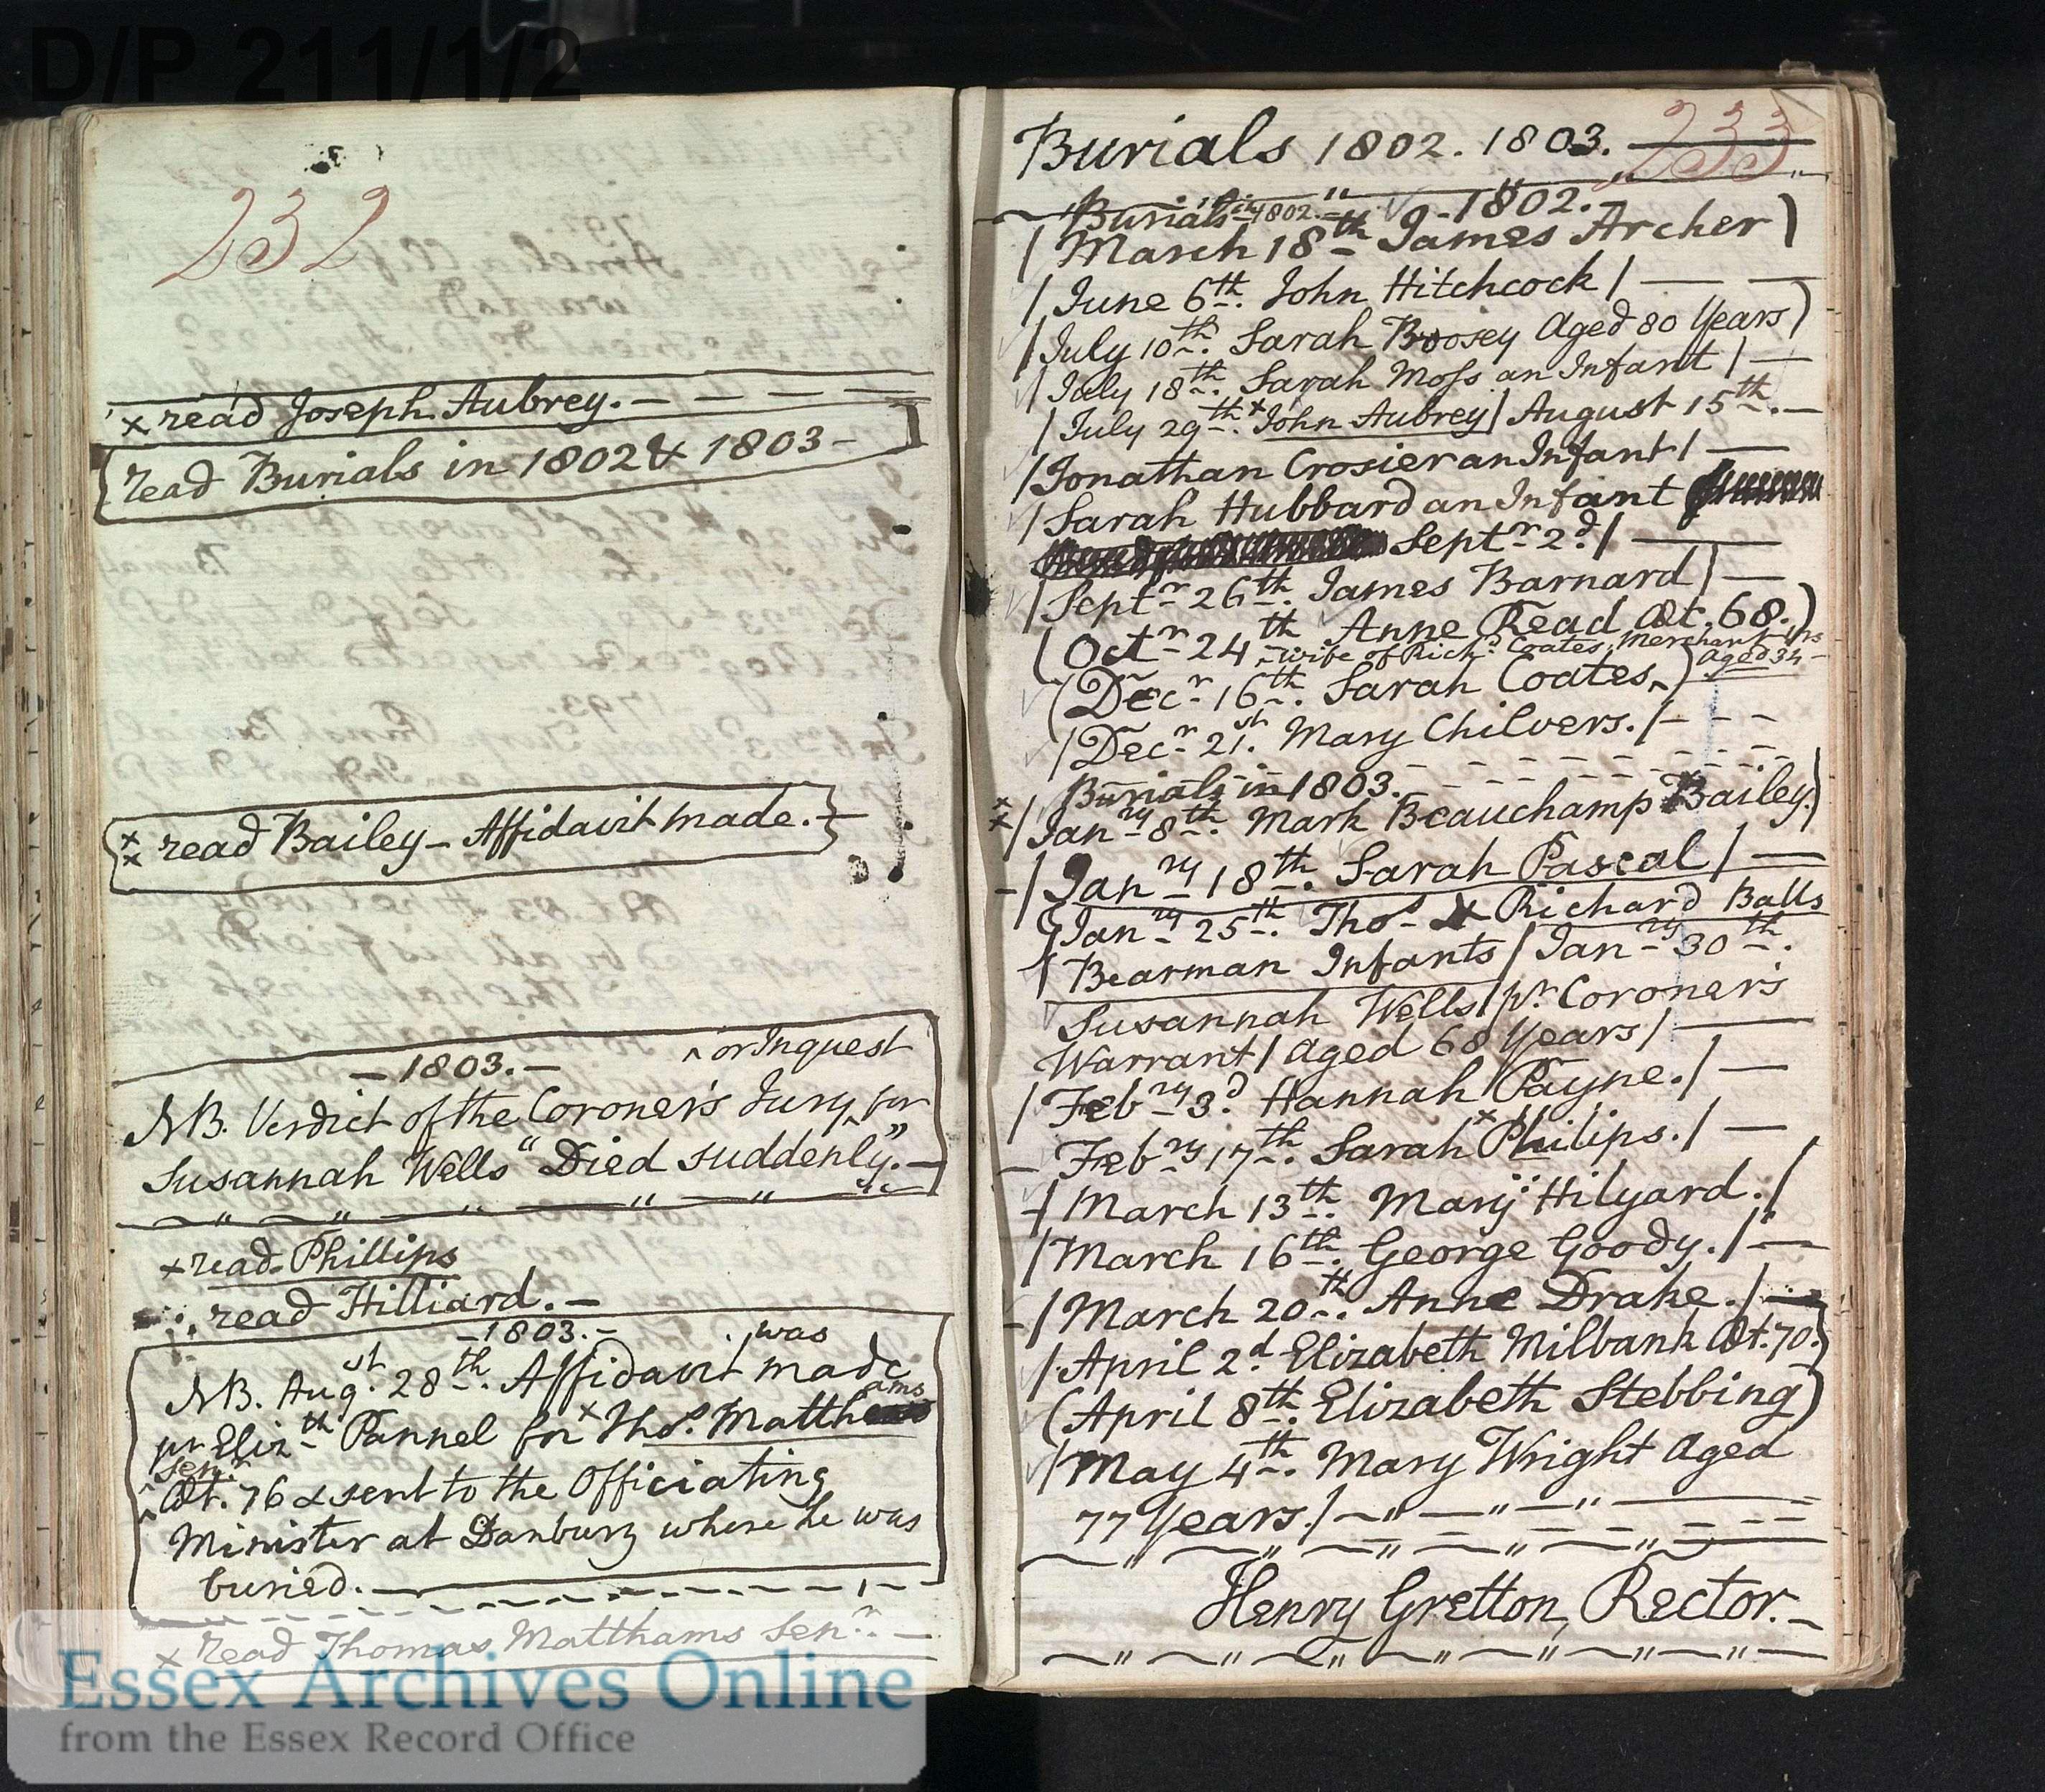 D/P 211/1/2
232
× read Joseph Aubrey. – – – –
read Burials in 1802 & 1803 –
×× read Bailey – Affidavit made. –
– 1803. – ^ or Inquest
NB. Verdict of the Coroner's Jury ^ for
Susannah Wells "Died suddenly". –
× read Phillips
read Hilliard. –
– 1803. – was
NB. Augst. 28th. Affidavit made
pr Elizth Pannel for × Thos. Matthams
senr.
^ Æt. 76 & sent to the Officiating
Minister at Danbury where he was
buried. –
× read Thomas Matthams Senr. –
Essex Archives Online
from the Essex Record Office
Burials 1802. 1803. 233
Burials in 1802. – 1802.
March 18th James Archer)
/ June 6th. John Hitchcock / –
/ July 10th. Sarah Boosey Aged 80 Years)
/ July 18th. Sarah Moss an Infant / –
/ July 29th. × John Aubrey / August 15th. –
/ Jonathan Crosier an Infant / –
/ Sarah Hubbard an Infant
Septr 2d. / –
/ Septr 26th. James Barnard / –
(Octr 24th Anne Read Æt. 68.)
^ wife of Richd. Coates, Merchant
Aged 34 –
(Decr 16th. Sarah Coates, ^)
/ Decr 21st. Mary Chilvers. / – – –
Burials in 1803.
×× / Janry 8th. Mark Beauchamp × Bailey.)
– / Janry 18th. Sarah Pascal / –
/ Janry 25th. Thos & Richard Balls
/ Bearman Infants / Janry 30th.
Susannah Wells / pr. Coroner's
Warrant / Aged 68 Years / –
/ Febry 3d. Hannah Payne. / –
– Febry 17th. Sarah × Philips. / –
/ March 13th. Mary Hilyard. /
/ March 16th. George Goody. / –
– / March 20th. Anne Drake. / –
/ April 2d. Elizabeth Milbank Æt. 70.)
(April 8th. Elizabeth Stebbing)
/ May 4th. Mary Wright Aged
77 Years. / –
Henry Gretton, Rector. –